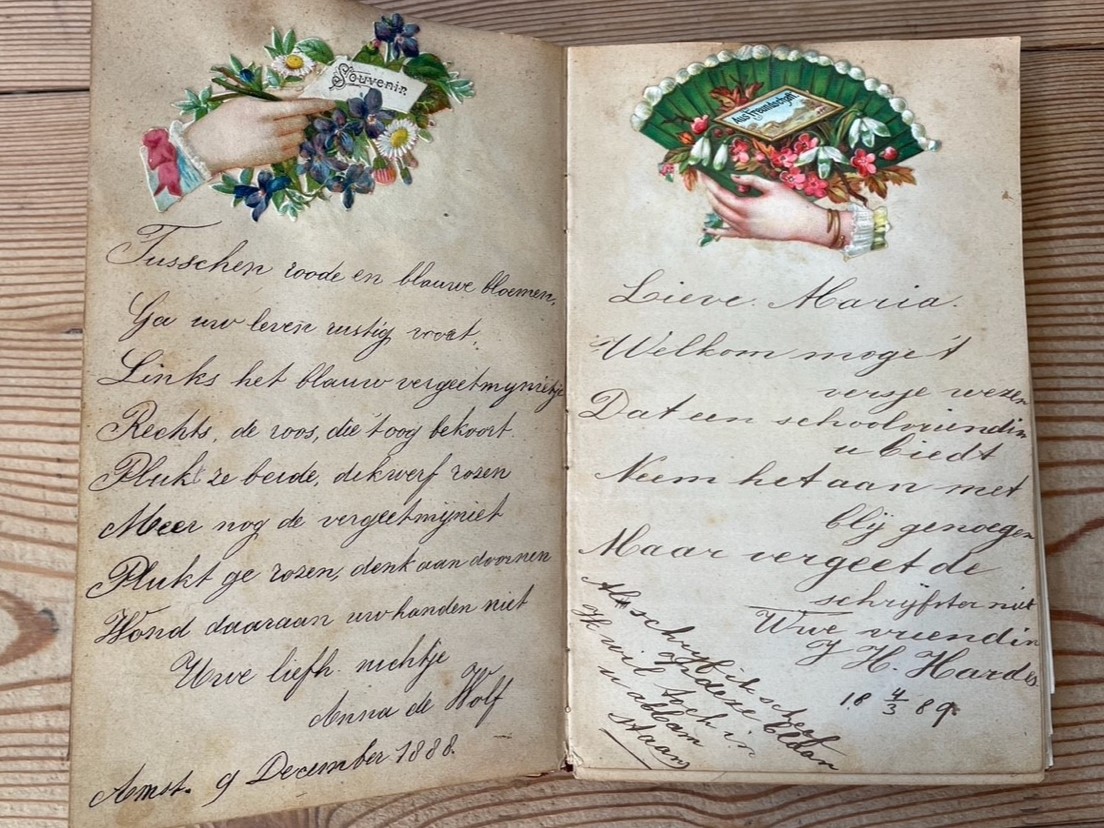 Souvenir
Tusschen roode en blauwe bloemen,
Ga uw leven rustig voort,
Links het blauw vergeetmynietje
Rechts, de roos, die 't oog bekoort.
Plukt ze beide, dikwerf rozen
Meer nog de vergeetmijniet
Plukt ge rozen, denk aan doornen
Wond daaraan uw handen niet
Uwe liefh. nichtje
Anna de Wolf
Amst. 9 December 1888.
Aus Freundschaft
Lieve Maria.
Welkom moge 't
versje wezen
Dat een schoolvriendin
u biedt
Neem het aan met
blij genoegen
Maar vergeet de
schrijfster niet
Uwe vriendin
H. Hardes
18 4/3 89.
Als schryf ik scheef
op deze blaan
Ik wil toch in
u alban
staan